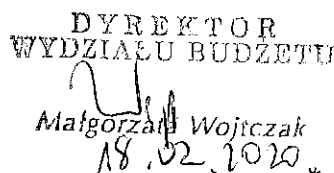 DYREKTOR
WYDZIAŁU BUDŻETU
Małgorzata Wojtczak
18.02.2020